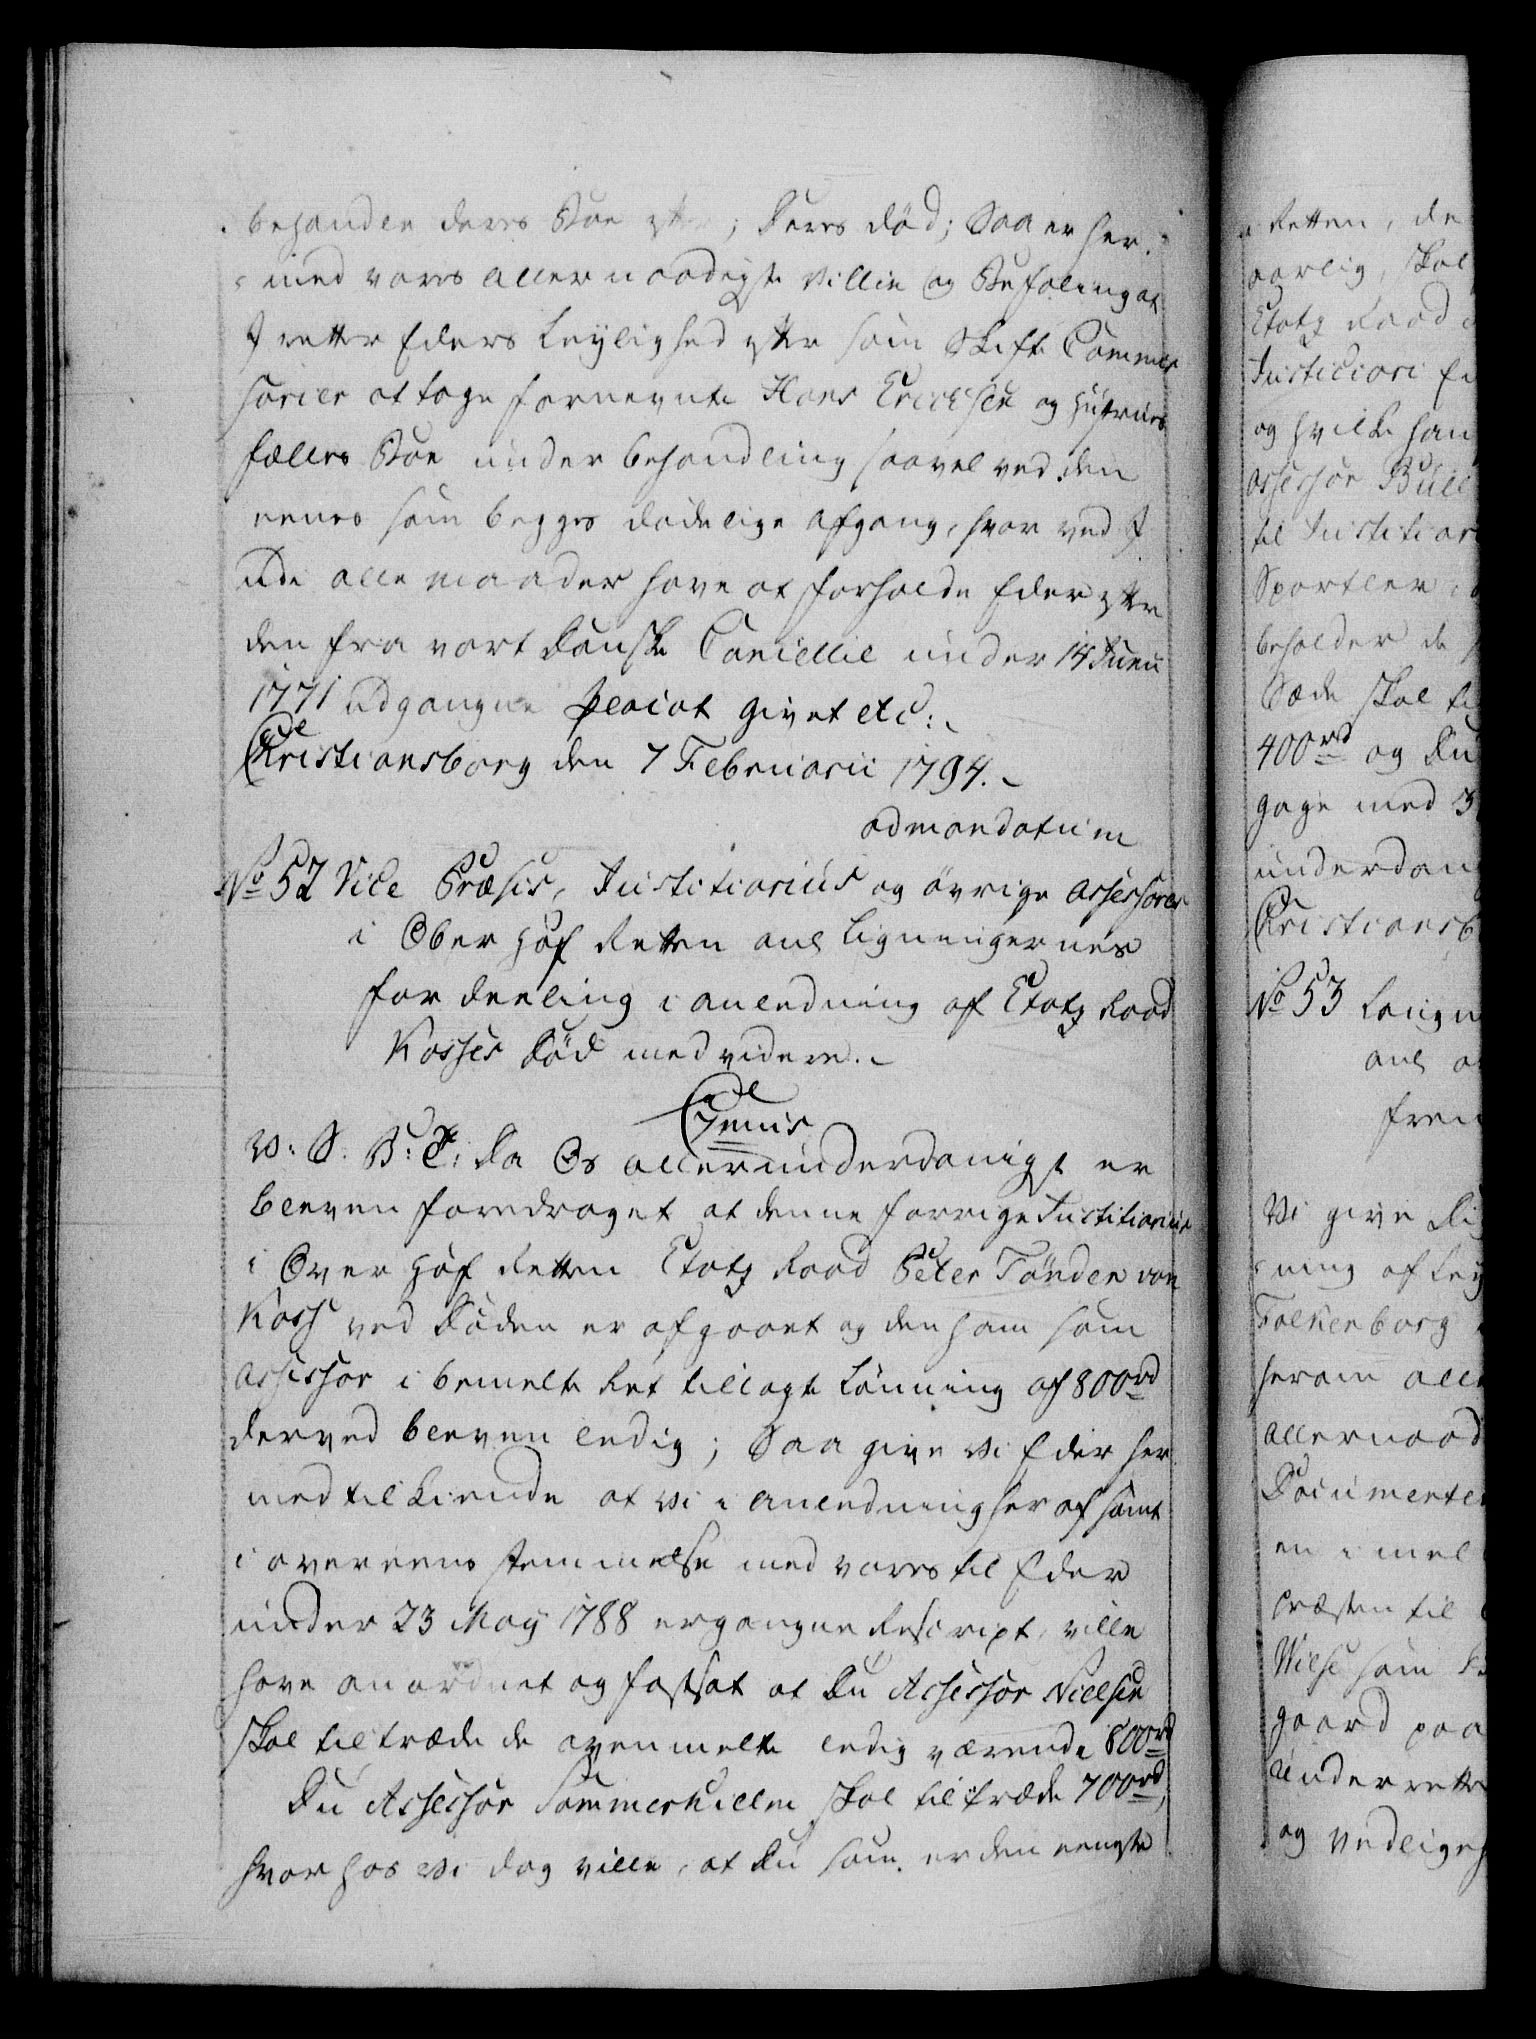 behandle deres Boe efter deres død; Saa er her-
med vores allernaadigste Villie og Befaling at
I retter Eders Leylighed efter som Skifte Commis
sarier at tage fornevnte Hans Ericksen og Hustrues
fælles Boe under behandling saavel ved den
eenes som begges dødelige afgang, hvor ved I
udi alle maader have at forholde Eder efter
den fra vort Danske Cancellie under 14 Junii
1771 udgangne Placat givet etc:
Christiansborg den 7 Februarii 1794.
ad mandatum
No 52 Vice Præses, Justitiarius og øvrige Assessorer
i Ober Hof Retten ang Ligningernes
fordeeling i anledning af Etatz Raad
Kosses Død med videre.
Gemis
W: S. B: T: Da Os allerunderdanigst er
bleven foredraget at denne forrige Justitiarius
i Over Hof Retten Etatz Raad Peter Tønder von
Koss ved Døden er afgaaet og den ham som
Assessor i bemelte Ret tillagte Lønning af 800 rd
derved bleven ledig; Saa give Vi Eder her
med tilkiende at Vi i anledning heraf samt
i overeensstemmelse med vores til Eder
under 23 May 1788 ergangne Rescript, ville
have anordnet og fastsat at Du Assessor Nielsen
skal tiltræde de ovenmelte ledig værende 800 rd
Du Assessor Sommerhielm skal tiltræde 700 rd,
hvorhos Vi dog ville, at Du som er den eengste
Retten, de
aarlig, skal
Etatz Raad
Justitiari
og hvilke han
Assessor Bull
til Justitiar
Sportler
beholder de
Sæde skal
400 rd og Du
gage med 3
underdan
Christiansb
No 53
ang
frem
Vi give Di
ning af
Falkenborg
herom alle
allernaad
Documenter
en imel
Præsten til
Wilse som
gaard paa
underrette
og vedligeh